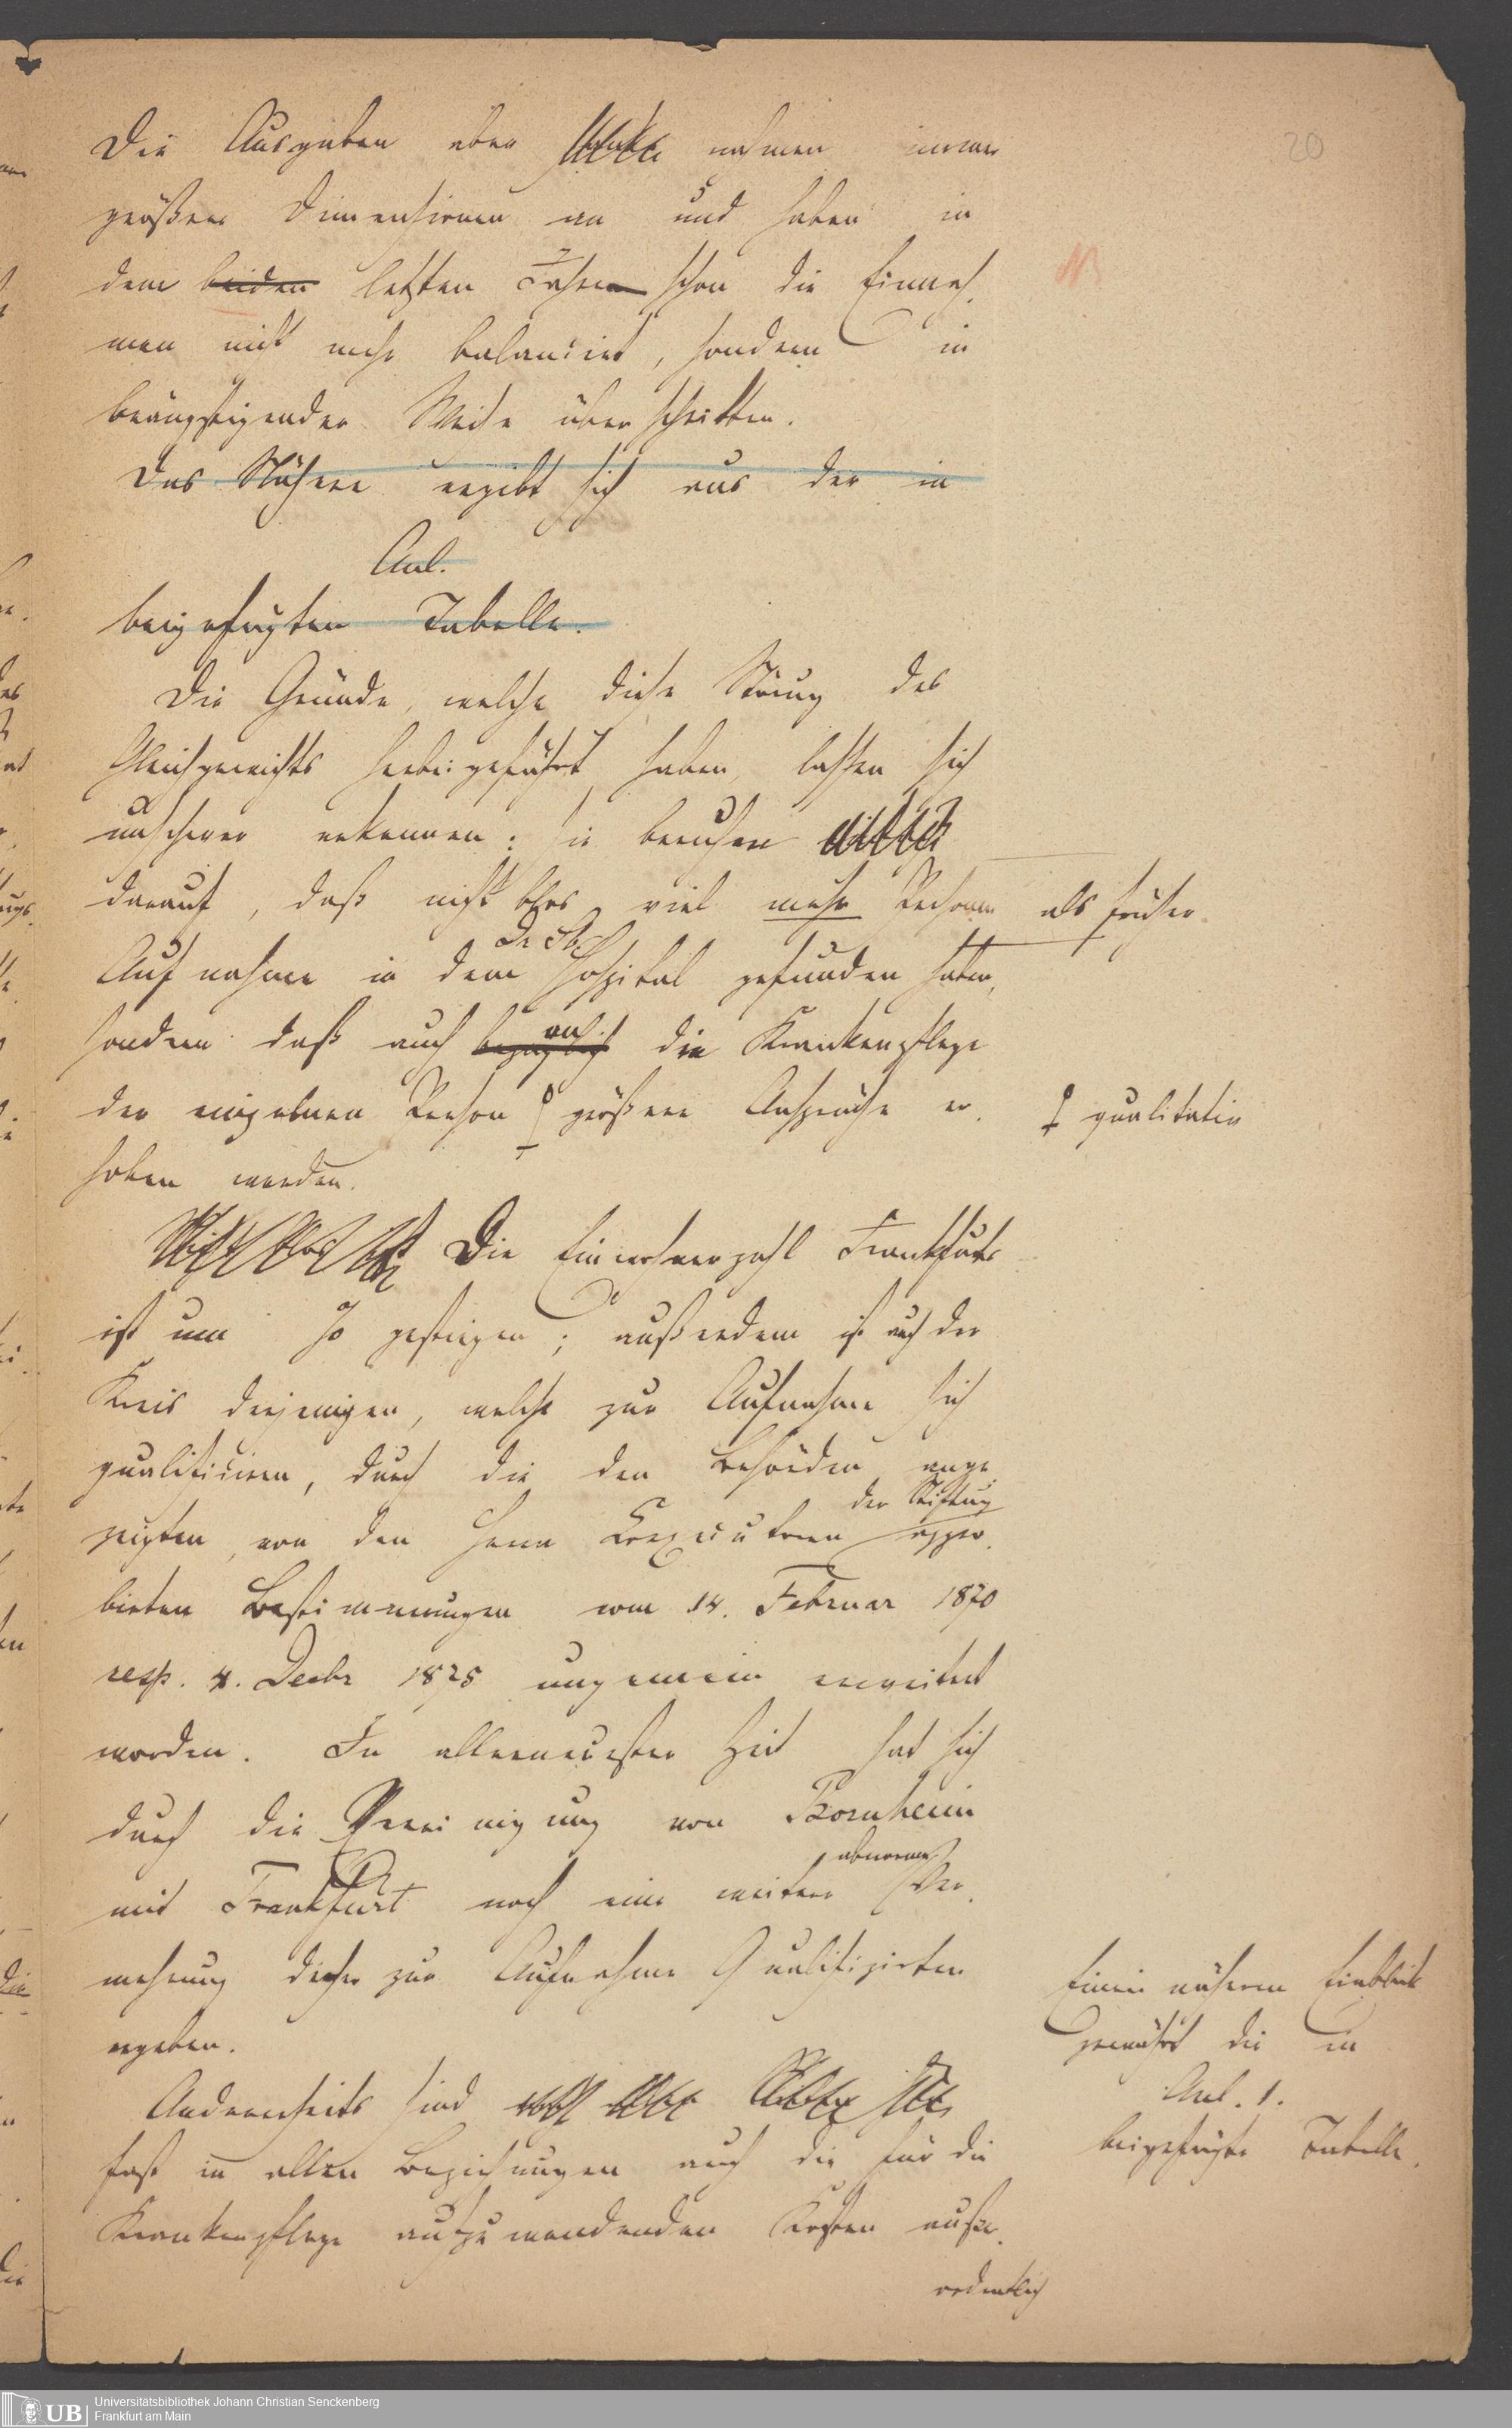 20
Die Ausgaben aber nahmen immer
größere Dimensionen an und haben in
dem beiden letzten Jahren schon die Einnah-
men nicht mehr balancirt, sondern in
beängstigender Weise überschritten.
Das Nähere ergibt sich aus der in
Anl.
beigefügten Tabelle.
Die Gründe, welche diese Störung des
Gleichgewichts herbeigeführt haben, lassen sich
unschwer erkennen: sie beruhen
darauf, daß nicht blos viel mehr Personen als früher
Aufnahme in dem Hospital gefunden haben,
sondern daß auch bezüglich an die Krankenpflege
der einzelnen Person größere Ansprüche er-
qualitativ
hoben werden.
Die Einwohnerzahl Frankfurts
ist um % gestiegen; außerdem ist auch der
Kreis derjenigen, welche zur Aufnahme sich
qualificiren, durch die den Behörden ange-
der Stiftung
zeigten, von den Herrn Executoren appro-
birten Bestimmungen vom 14. Februar 1870
resp. 4. Decbr 1875 ungemein erweitert
worden. In allerneuester Zeit hat sich
durch die Vereinigung von Bornheim
abnorme
mit Frankfurt noch eine weitere Ver-
mehrung dieser zur Aufnahme Qualifizirten
ergeben.
Einen näheren Einblick
gewährt die in
Anl. 1.
beigefügte Tabelle.
Andererseits sind
fast in allen Beziehungen auch die für die
Krankenpflege aufzuwendenden Kosten außer-
ordentlich
UB
Universitätsbibliothek Johann Christian Senckenberg
Frankfurt am Main